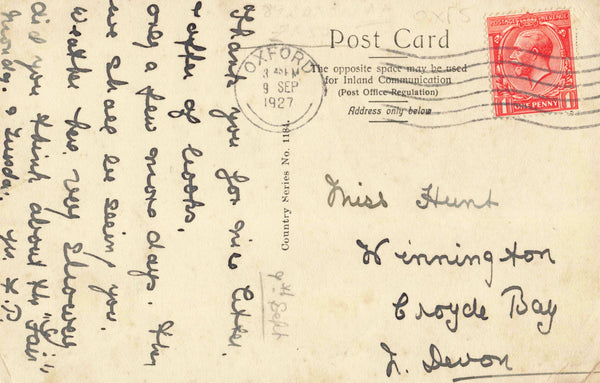 Thank you for nice letter.
& offer of books.
only a few more days.
we shall be seeing you.
Weather very showery
did you think about the "Fair"
& Tuesday. yrs
Post Card
The opposite space may be used
for Inland Communication
(Post Office Regulation)
Address only below
OXFORD
9 SEP
1927
POSTAGE REVENUE
ONE PENNY
Country Series No. 1184.
9th Sept
Miss Hunt
Winnington
Croyde Bay
N. Devon